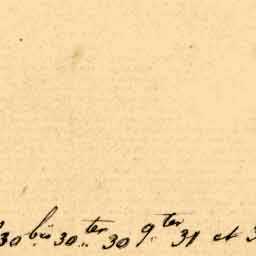 30 bis 30 ter 30 9. ter 31 et 3